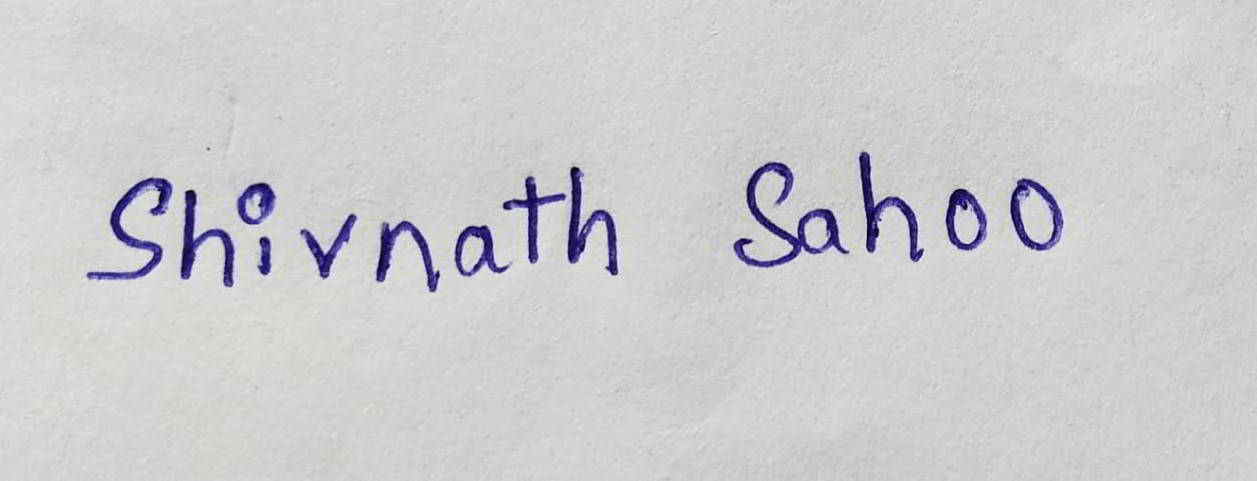 Shivnath Sahoo